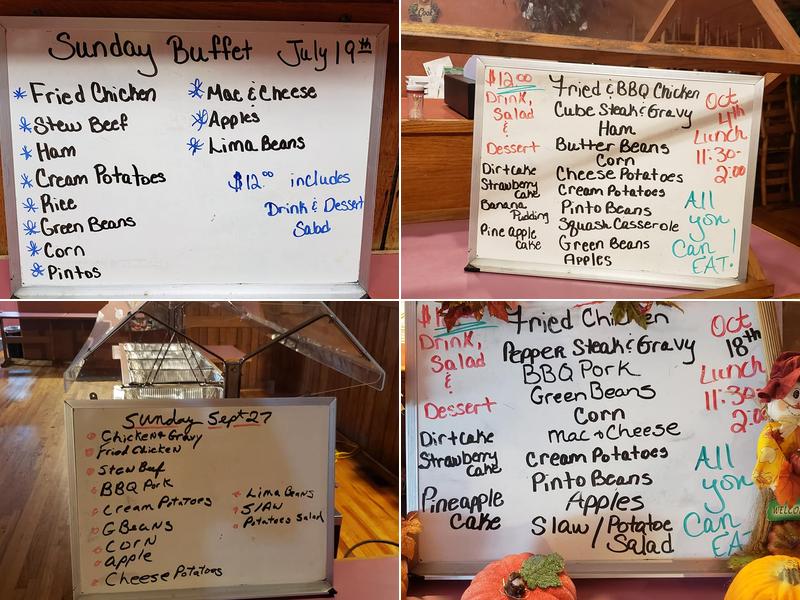 Sunday Buffet July 19th
Fried Chicken
Stew Beef
Ham
Cream Potatoes
Rice
Green Beans
Corn
Pintos
Mac & Cheese
Apples
Lima Beans
$12.00 includes
Drink & Dessert
Salad
Cook
$12.00
Drink,
Salad
&
Dessert
Dirtcake
Strawberry
Cake
Banana
Pudding
Pine apple
cake
Fried & BBQ Chicken
Cube Steak & Gravy
Ham
Butter Beans
Corn
Cheese Potatoes
Cream Potatoes
Pinto Beans
Squash Casserole
Green Beans
Apples
Oct
4th
Lunch
11:30-
2:00
All
you
Can
EAT!
Sunday Sept 27
Chicken & Gravy
Fried Chicken
Stew Beef
BBQ Pork
Cream Potatoes
G Beans
Corn
apple
Cheese Potatoes
Lima Beans
Slaw
Potatoes Salad
Drink,
Salad
&
Dessert
Dirtcake
Strawberry
Cake
Pineapple
Cake
Fried Chicken
Pepper Steak & Gravy
BBQ Pork
Green Beans
Corn
mac & Cheese
Cream Potatoes
Pinto Beans
Apples
Slaw / Potatoe
Salad
Oct
18th
Lunch
11:30-
2:00
All
you
Can
EAT
WELCO